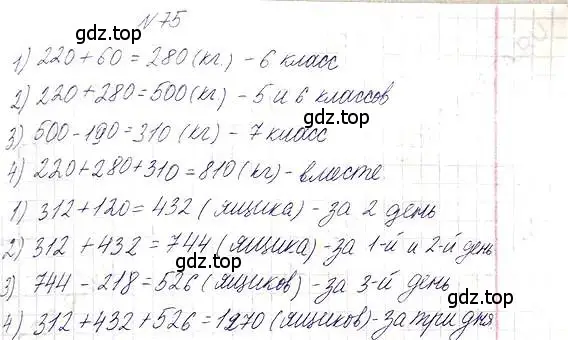 №75
1) 220+60=280(кг) - 6 класс
2) 220+280=500(кг) - 5 и 6 классов
3) 500-190=310(кг) - 7 класс
4) 220+280+310=810(кг) - вместе
1) 312+120=432 (ящика) - за 2 день
2) 312+432=744 (ящика) - за 1-й и 2-й день
3) 744-218=526 (ящиков) - за 3-й день
4) 312+432+526=1270 (ящиков) - за три дня